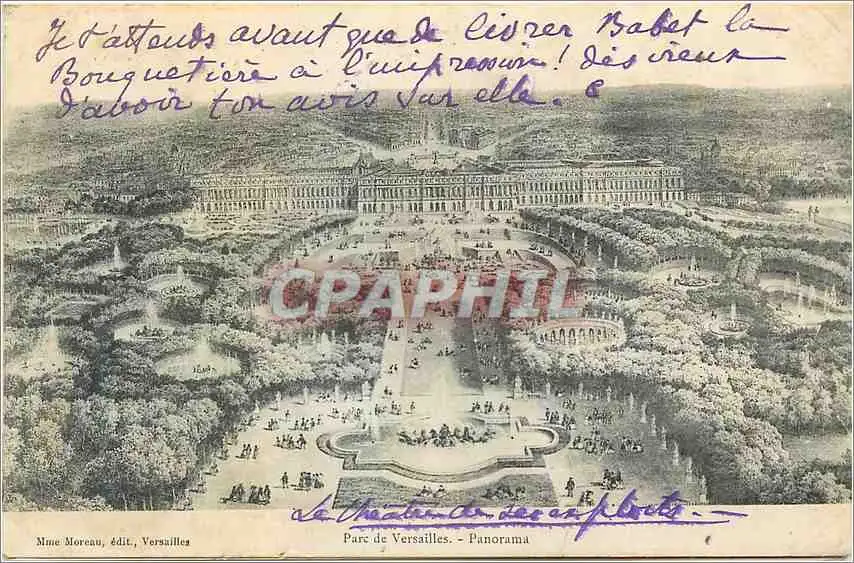 Je t'attends avant que de livrer Babet la
Bouquetière à l'impression! dés vieux
d'avoir ton avis sur elle. C
CPAPHIL
Le théâtre de ses exploits. -
Mme Moreau, édit., Versailles
Parc de Versailles. - Panorama